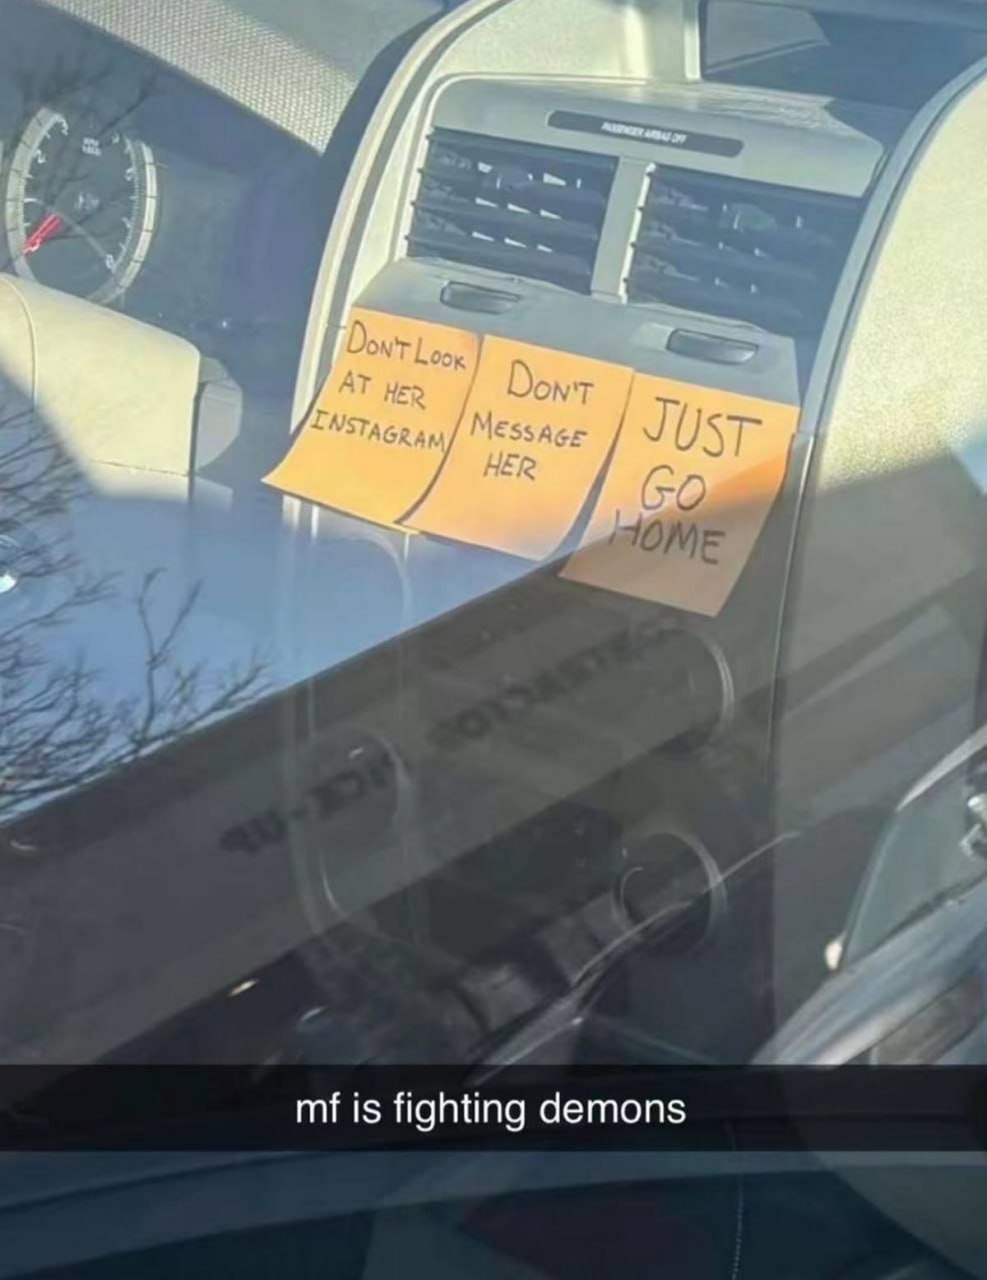 PASSENGER AIRBAG OFF
DON'T LOOK
AT HER
INSTAGRAM
DON'T
MESSAGE
HER
JUST
GO
HOME
mf is fighting demons